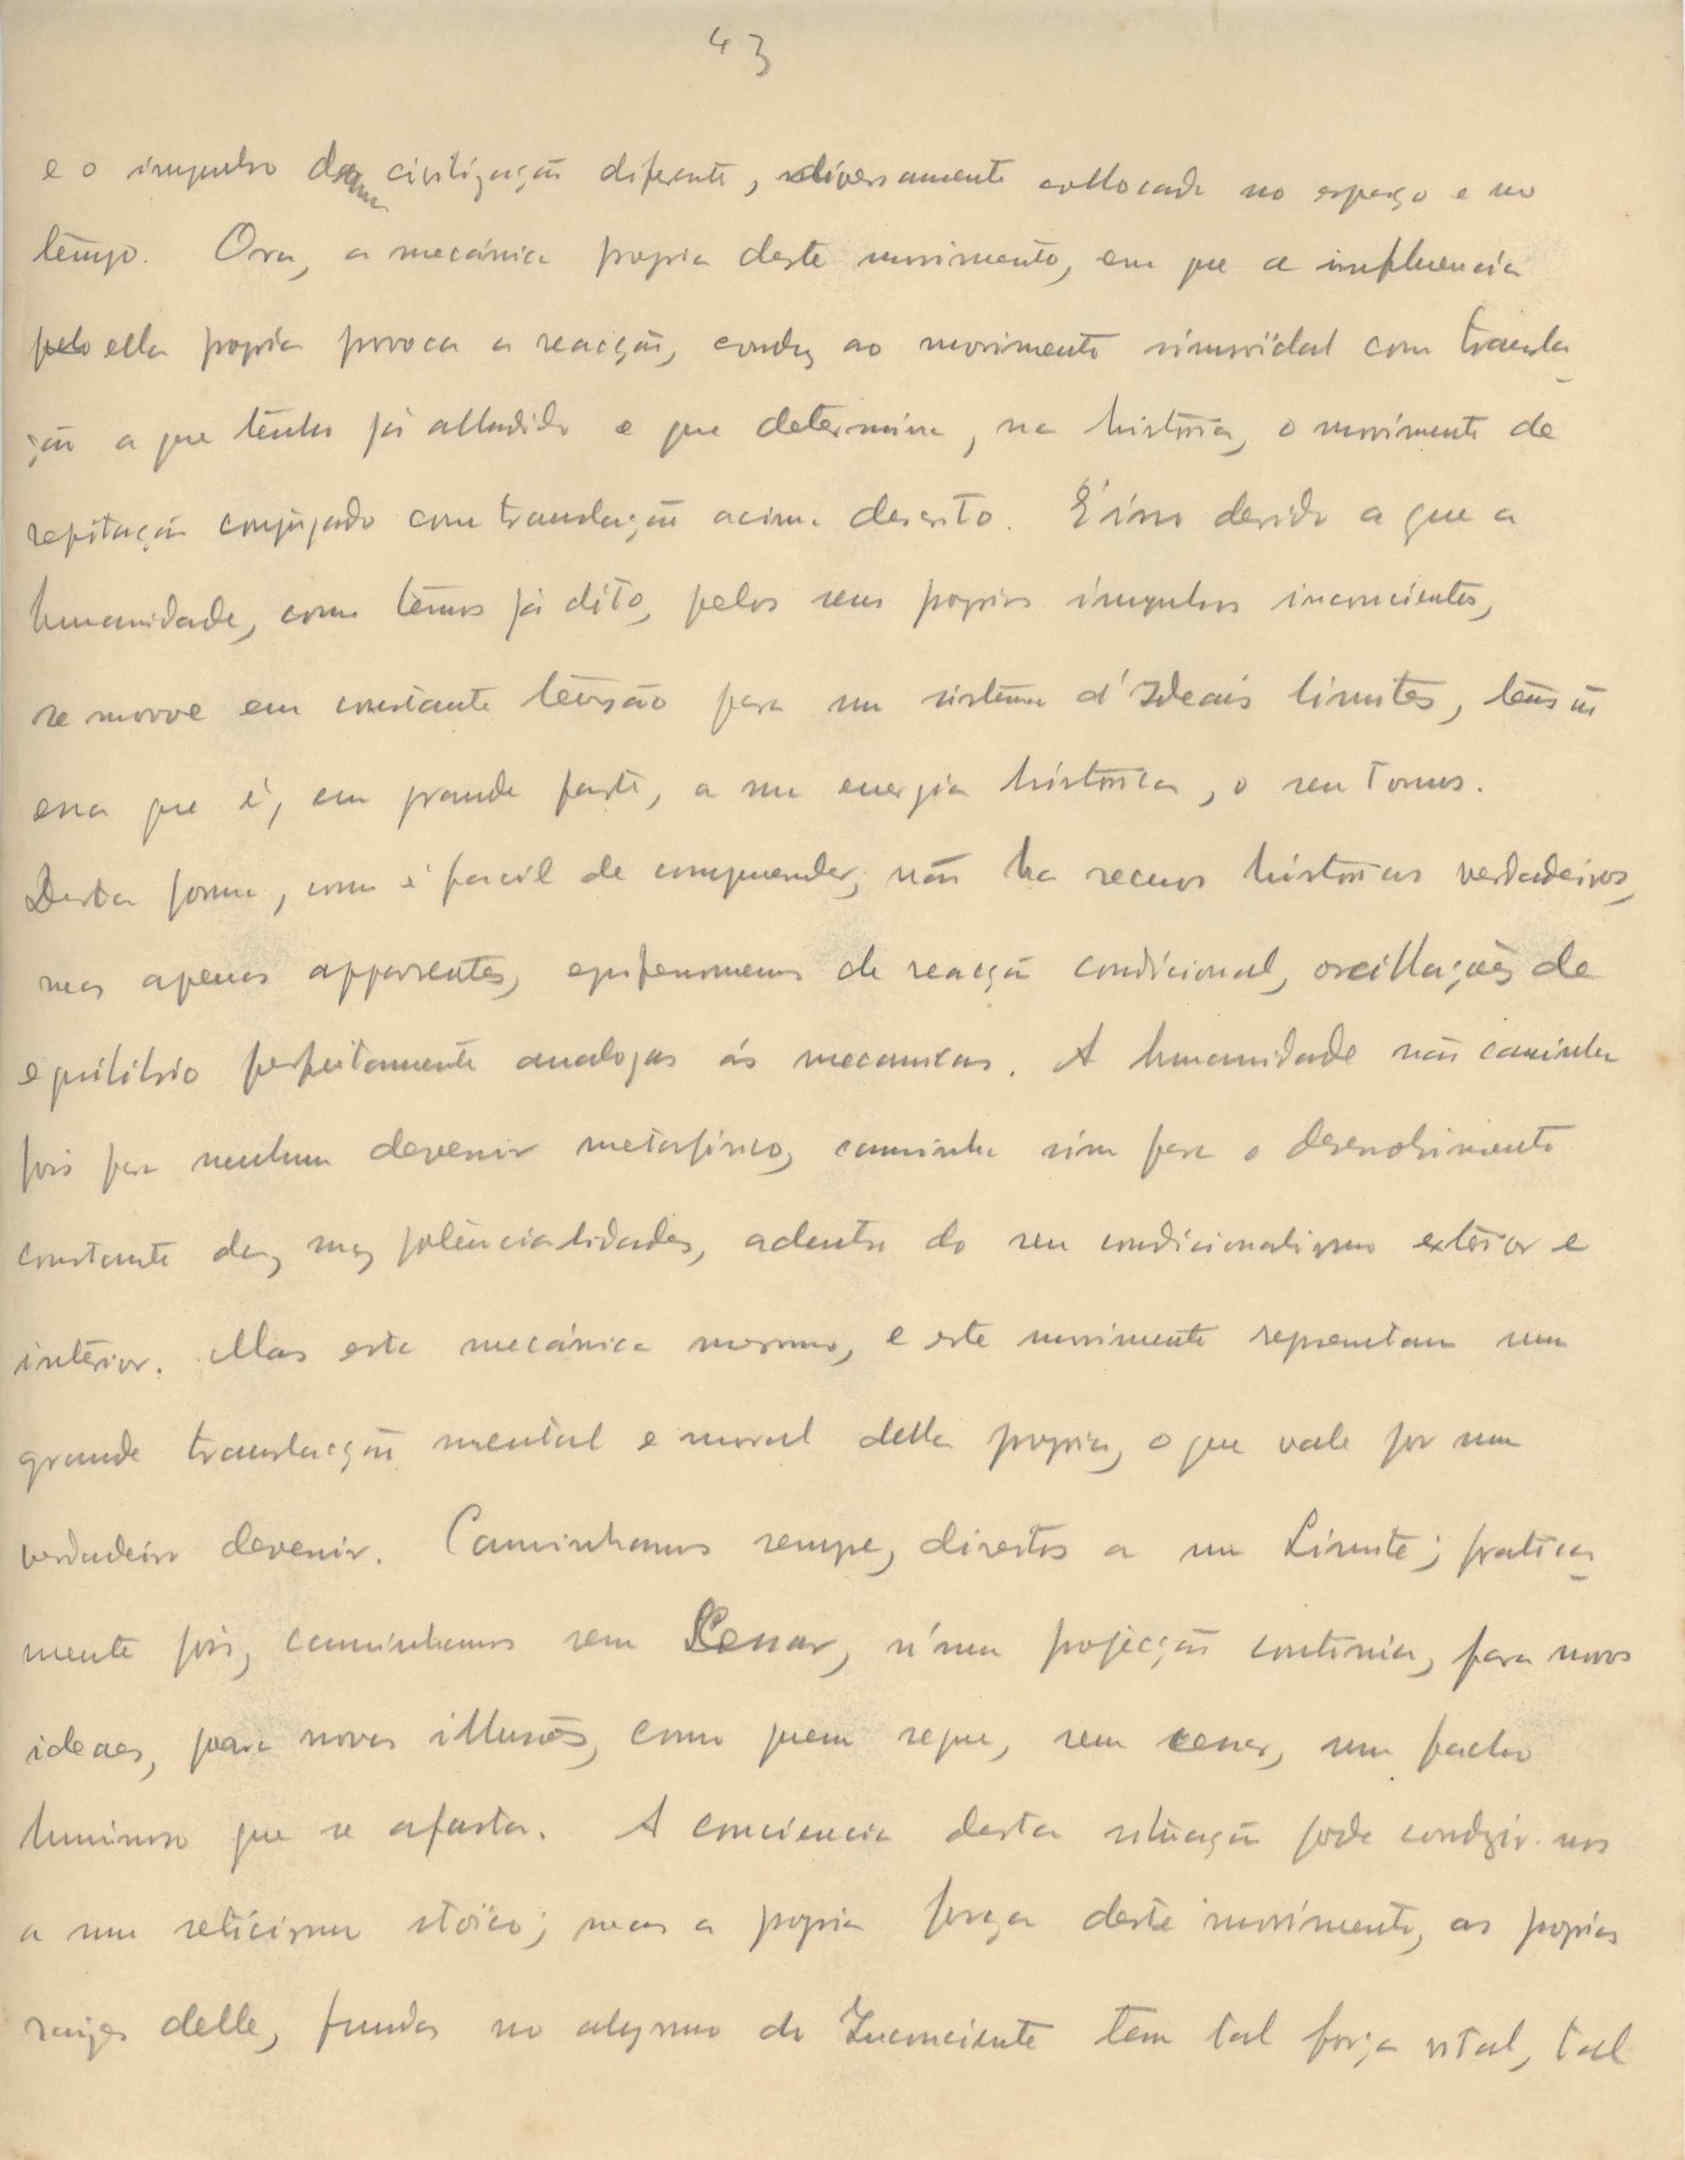 43
e o impulso duma civilização diferente, diversamente collocada no espaço e no
tempo. Ora, a mecánica propria deste movimento, em que a influencia
pelo ella propria provoca a reacção, conduz ao movimento sinusoïdal com transla-
ção a que tenho já alludido e que determina, na história, o movimento de
repetição conjugado com translação acima descrito. É isso devido a que a
humanidade, como temos já dito, pelos seus proprios impulsos inconcientes,
se move em constante tensão para um sistema d'Ideais limites, tensão
essa que é, em grande parte, a sua energia histórica, o seu Tonus.
Desta forma, como é facil de compreender, não ha recuos históricos verdadeiros,
mas apenas apparentes, epifenomenos de reacção condicional, oscillações de
equilibrio perfeitamente analogas ás mecanicas. A humanidade não caminha
pois para nenhum devenir metafísico, caminha sim para o desenvolvimento
constante das suas potencialidades, adentro do seu condicionalismo exterior e
interior. Mas esta mecánica mesmo, e este movimento representam uma
grande translacção mental e moral della propria, o que vale por um
verdadeiro devenir. Caminhamos sempre, direitos a um Limite; pratica-
mente pois, caminhamos sem cessar, n'uma projecção continua, para novos
ideaes, para novas illusões, como quem segue, sem cessar, um facho
luminoso que se afasta. A conciencia desta situação pode conduzir-nos
a um scticismo stoïco; mas a propria força deste movimento, as proprias
raizes delle, fundas no abysmo do Inconciente tem tal força vital, tal